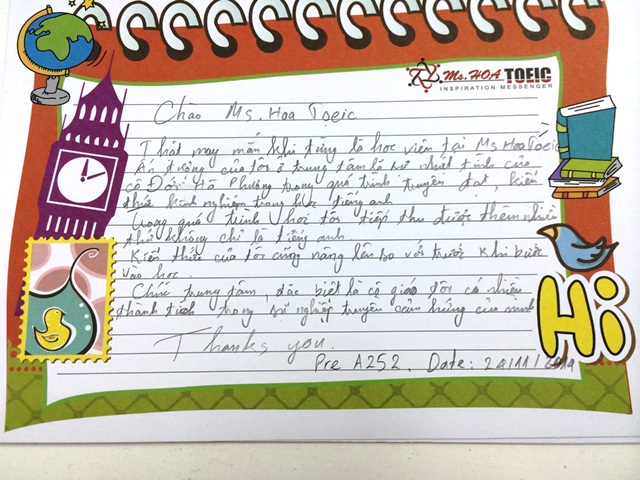 Ms. HOA TOEIC
INSPIRATION MESSENGER
Chào Ms. Hoa Toeic
Thật may mắn khi từng là học viên tại Ms Hoa Toeic
Ấn tượng của tôi ở trung tâm là sự nhiệt tình của
cô Đới Hà Phương trong quá trình truyền đạt, kiến
thức kinh nghiệm trong học tiếng anh
trong quá trình học tôi tiếp thu được thêm nhiều
thứ không chỉ là tiếng anh
Kiến thức của tôi cũng nâng lên so với trước khi bước
vào học.
Chúc trung tâm, đặc biệt là cô giáo tôi có nhiều
thành tích trong sự nghiệp truyền cảm hứng của mình
Thanks you.
Pre A252. Date: /11/2019
Hi